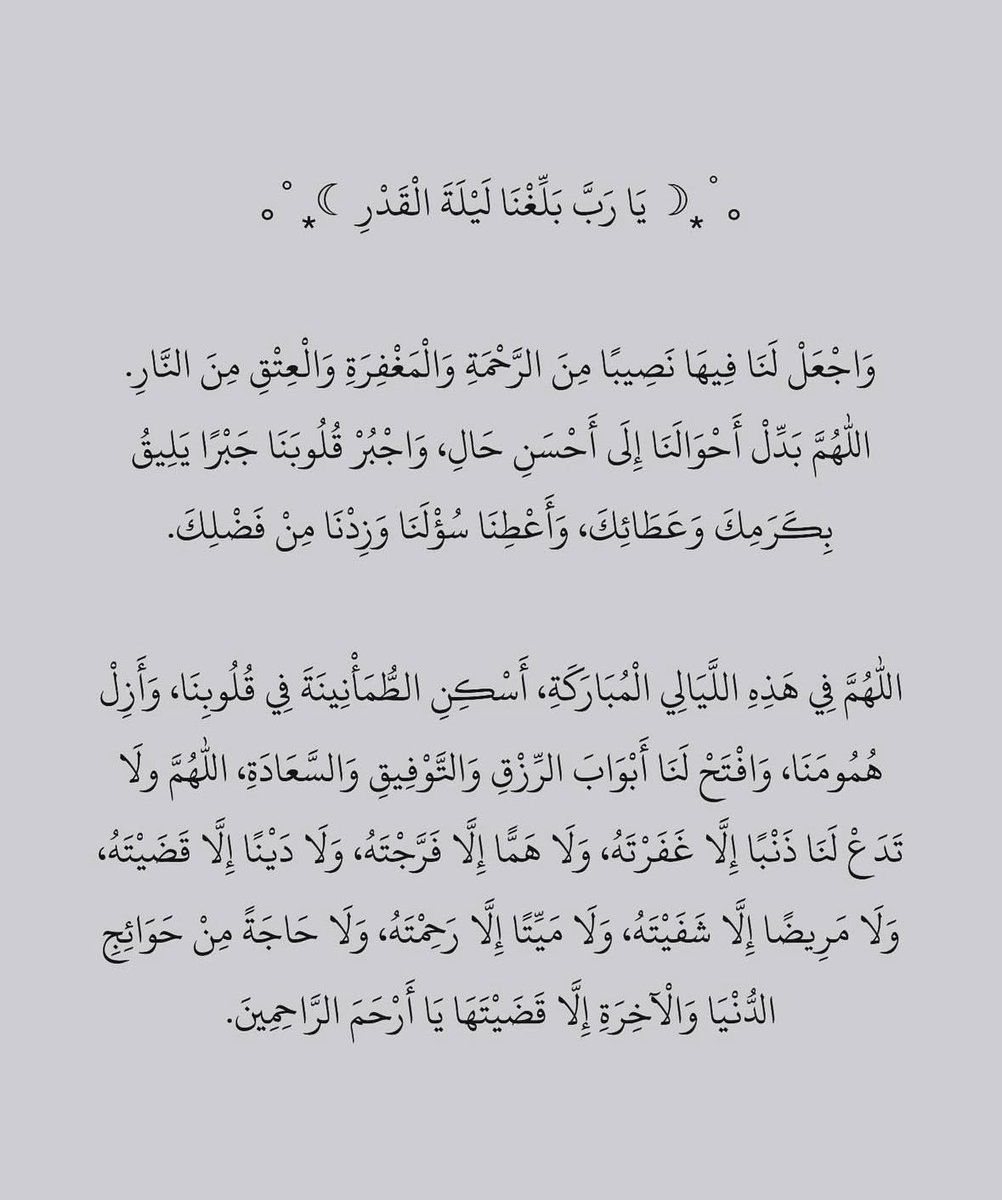 ｡ ﾟ⁎☽ يَا رَبَّ بَلِّغْنَا لَيْلَةَ الْقَدْرِ ☾⁎ ﾟ｡
وَاجْعَلْ لَنَا فِيهَا نَصِيبًا مِنَ الرَّحْمَةِ وَالْمَغْفِرَةِ وَالْعِتْقِ مِنَ النَّارِ.
اللَّهُمَّ بَدِّلْ أَحْوَالَنَا إِلَى أَحْسَنِ حَالِ، وَاجْبُرْ قُلُوبَنَا جَبْرًا يَلِيقُ
بِكَرَمِكَ وَعَطَائِكَ، وَأَعْطِنَا سُؤْلَنَا وَزِدْنَا مِنْ فَضْلِكَ.
اللَّهُمَّ فِي هَذِهِ اللَّيَالِي الْمُبَارَكَةِ، أَسْكِنِ الطُّمَأْنِينَةَ فِي قُلُوبِنَا، وَأَزِلْ
هُمُومَنَا، وَافْتَحْ لَنَا أَبْوَابَ الرِّزْقِ وَالتَّوْفِيقِ وَالسَّعَادَةِ، اللَّهُمَّ ولَا
تَدَعْ لَنَا ذَنْبًا إِلَّا غَفَرْتَهُ، وَلَا هَمًّا إِلَّا فَرَّجْتَهُ، وَلَا دَيْنًا إِلَّا قَضَيْتَهُ،
وَلَا مَرِيضًا إِلَّا شَفَيْتَهُ، وَلَا مَيِّتًا إِلَّا رَحِمْتَهُ، وَلَا حَاجَةً مِنْ حَوَائِجِ
الدُّنْيَا وَالْآخِرَةِ إِلَّا قَضَيْتَهَا يَا أَرْحَمَ الرَّاحِمِينَ.